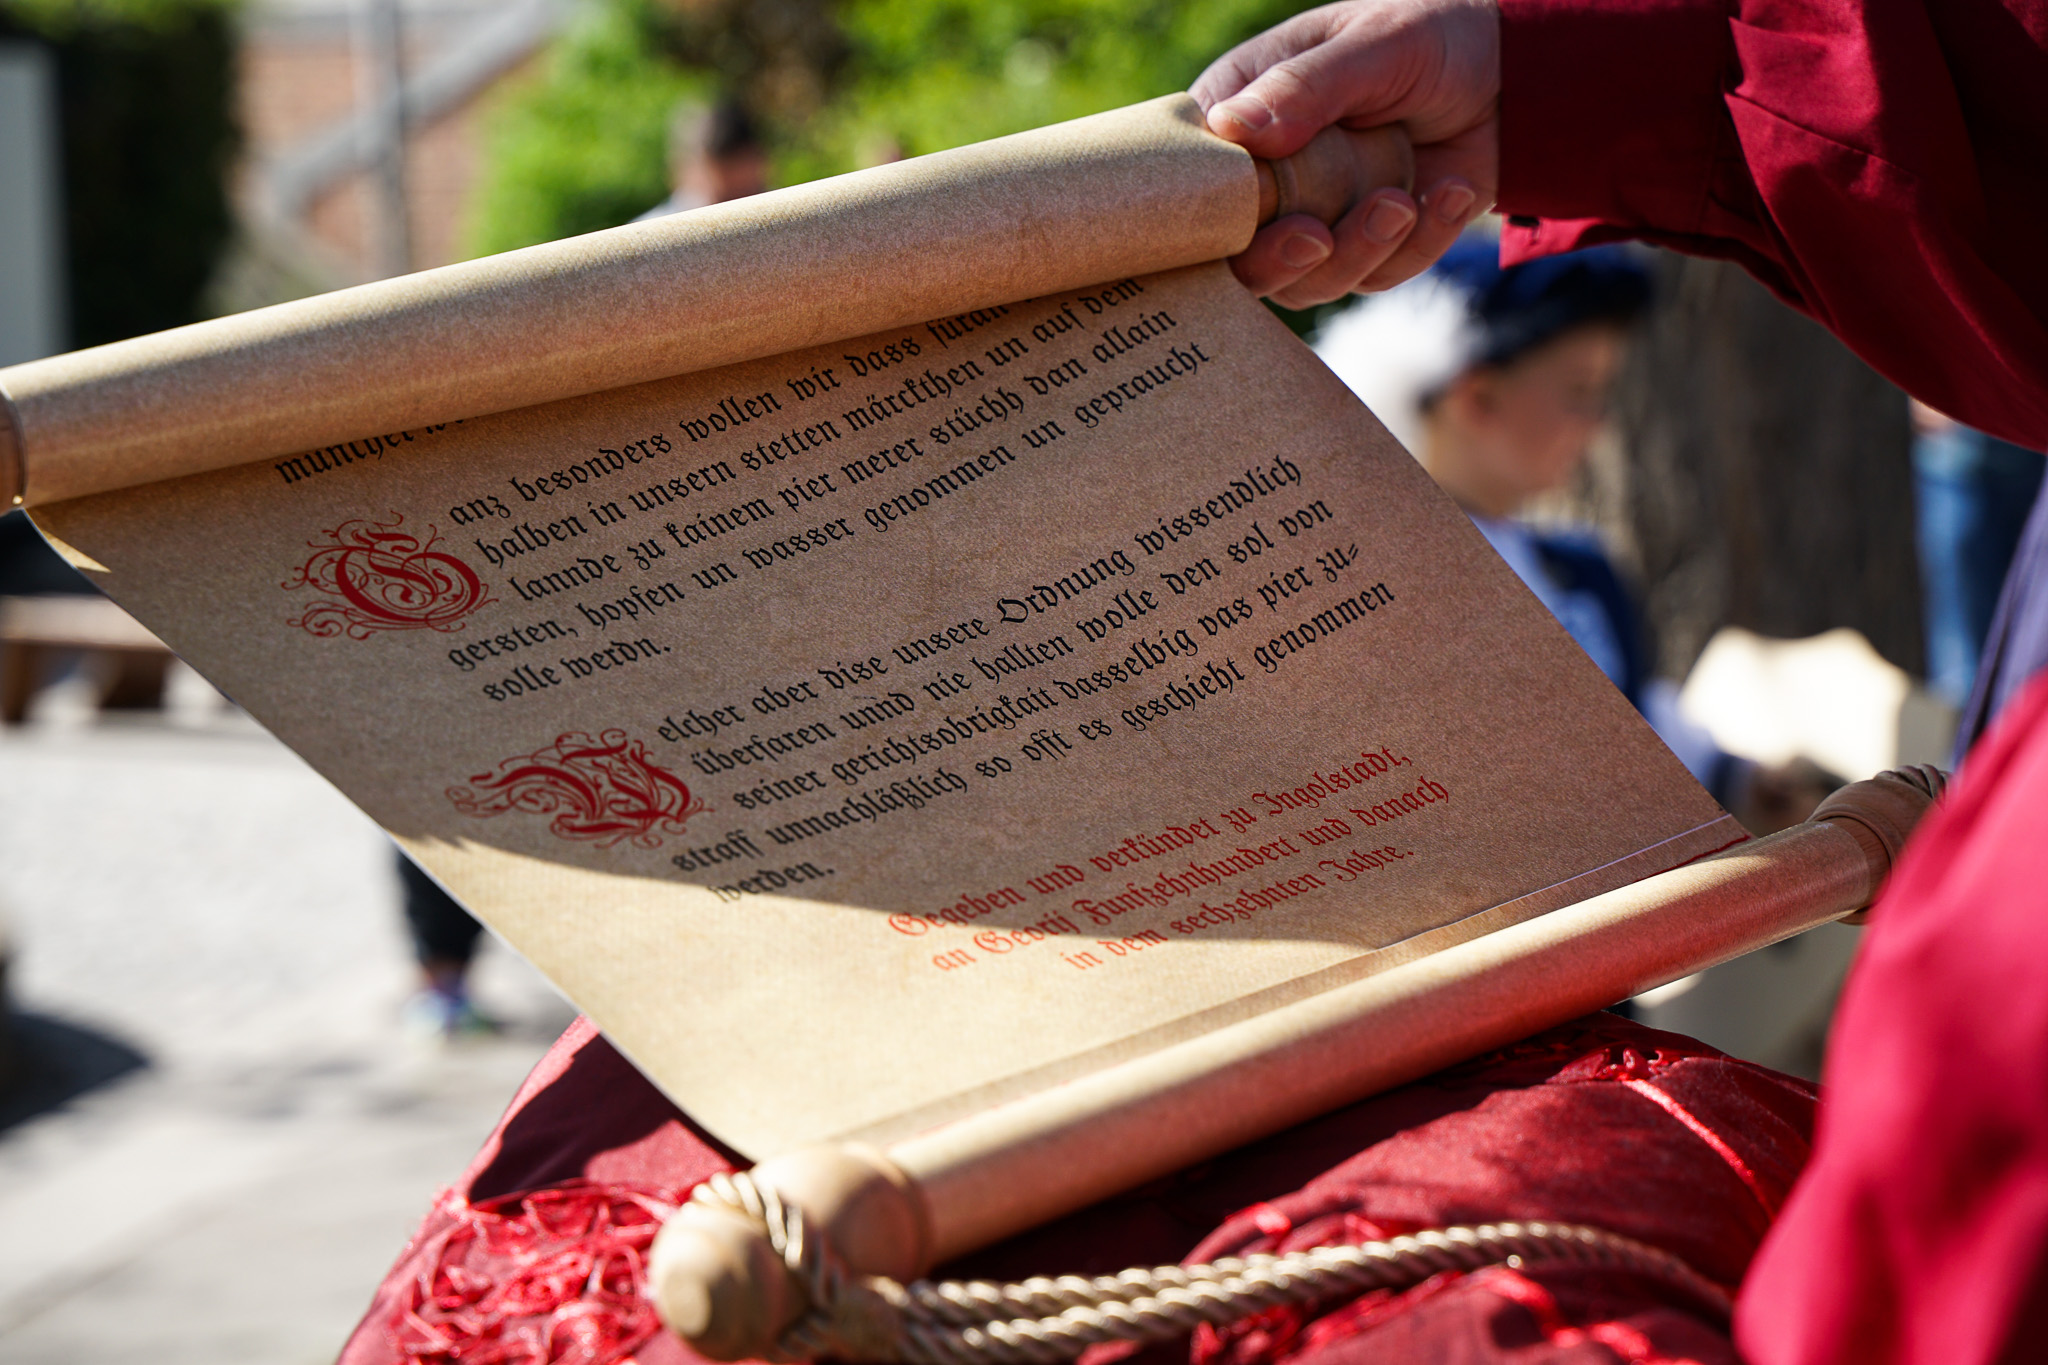 Ganz besonders wollen wir dass füran
halben in unsern stetten märckthen un auf dem
lannde zu kainem pier merer stüchh dan allain
gersten, hopfen un wasser genommen un gepraucht
solle werdn.
Welcher aber dise unsere Ordnung wissendlich
überfaren unnd nie hallten wolle den sol von
seiner gerichtsobrigkait dasselbig vas pier zu-
straff unnachläßlich so offt es geschieht genommen
werden.
Gegeben und verkündet zu Ingolstadt,
an Georij Funfzehnhundert und danach
in dem sechzehnten Jahre.